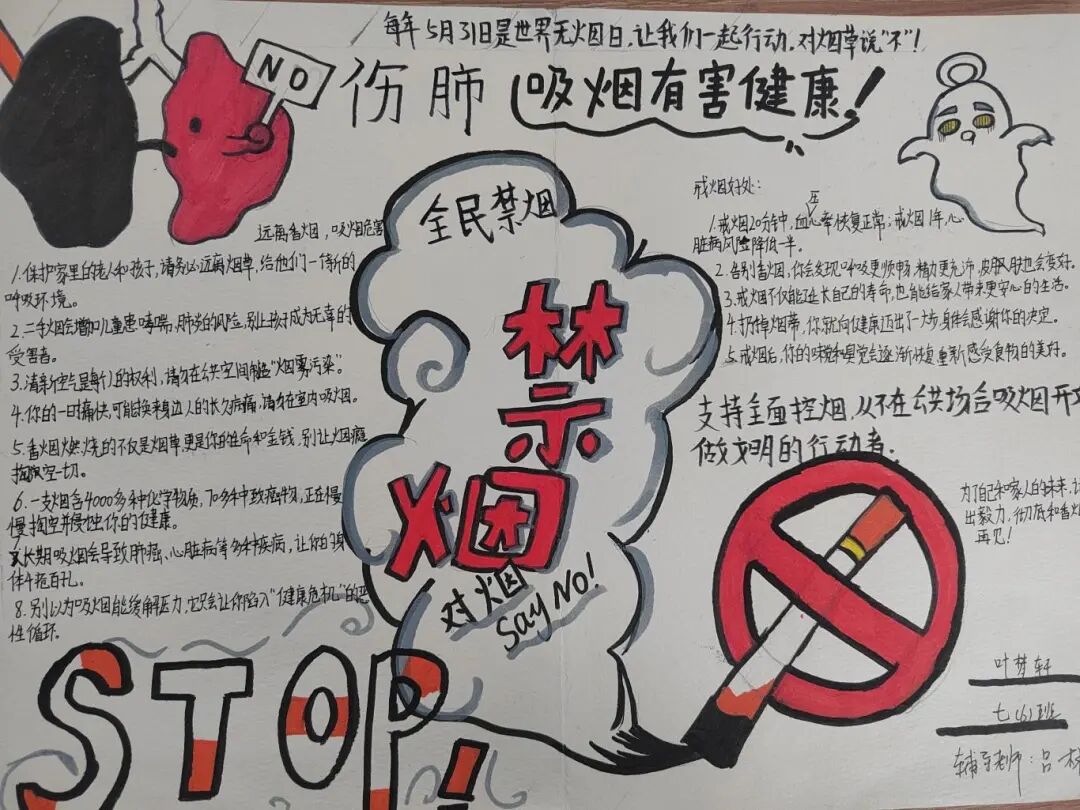 每年5月31日是世界无烟日,让我们一起行动,对烟草说"不"!
NO
伤肺
吸烟有害健康!
全民禁烟
禁
烟
对烟
say NO!
远离香烟,吸烟危害
1.保护家里的老人和孩子,请务必远离烟草,给他们一个清新的
呼吸环境。
2.二手烟会增加儿童患哮喘,肺炎的风险,别让孩子成为无辜的
受害者。
3.清新空气是每个人的权利,请勿在公共空间制造"烟雾污染"。
4.你的一时痛快,可能换来身边人的长久病痛,请勿在室内吸烟。
5.香烟燃烧的不仅是烟草更是你的生命和金钱,别让烟瘾
掏空一切。
6.一支烟含4000多种化学物质,70多种致癌物,正在慢
慢掏空并侵蚀你的健康。
长期吸烟会导致肺癌、心脏病等多种疾病,让你的身
体千疮百孔。
8.别以为吸烟能缓解压力,它只会让你陷入"健康危机"的恶
性循环。
STOP!
戒烟好处:
1.戒烟20分钟,血压心率恢复正常;戒烟1年,心
脏病风险降低一半。
2.告别香烟,你会发现呼吸更顺畅,精力更充沛,皮肤也会变好。
3.戒烟不仅能延长自己的寿命,也能给家人带来更安心的生活。
4.扔掉烟蒂,你就向健康迈出了一大步,身体会感谢你的决定。
5.戒烟后,你的味觉和嗅觉会逐渐恢复,重新感受食物的美好。
支持全面控烟,从不在公共场合吸烟开
做文明的行动者。
为了自己和家人的未来,
出毅力,彻底和香烟
再见!
叶梦轩
七(6)班
辅导老师:吕